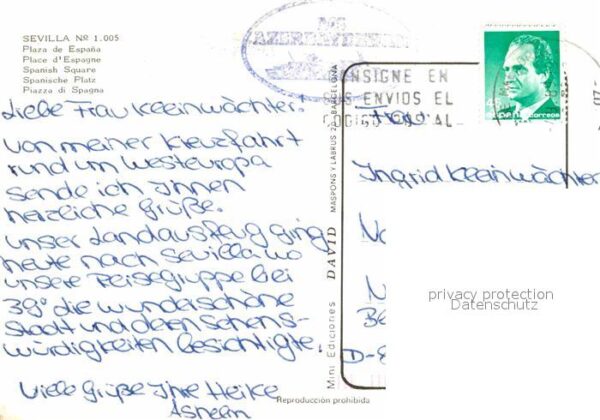 SEVILLA Nº 1.005
Plaza de España
Place d'Espagne
Spanish Square
Spanische Platz
Piazza di Spagna
Liebe Frau Kleinwächter!
Von meiner Kreuzfahrt
rund um Westeuropa
sende ich Ihnen
herzliche Grüße.
Unser Landausflug ging
heute nach Sevilla wo
unsere Reisegruppe bei
38° die wunderschöne
Stadt und deren Sehens-
würdigkeiten besichtigte.
Viele Grüße Ihre Heike
Mini Ediciones DAVID MASPONS Y LABRUS 22 - BARCELONA
Reproducción prohibida
AZERBAYDZHAN
NSIGNE EN
SUS ENVIOS EL
CODIGO POSTAL
correos
Frau
Ingrid Kleinwächter
privacy protection
Datenschutz
D-